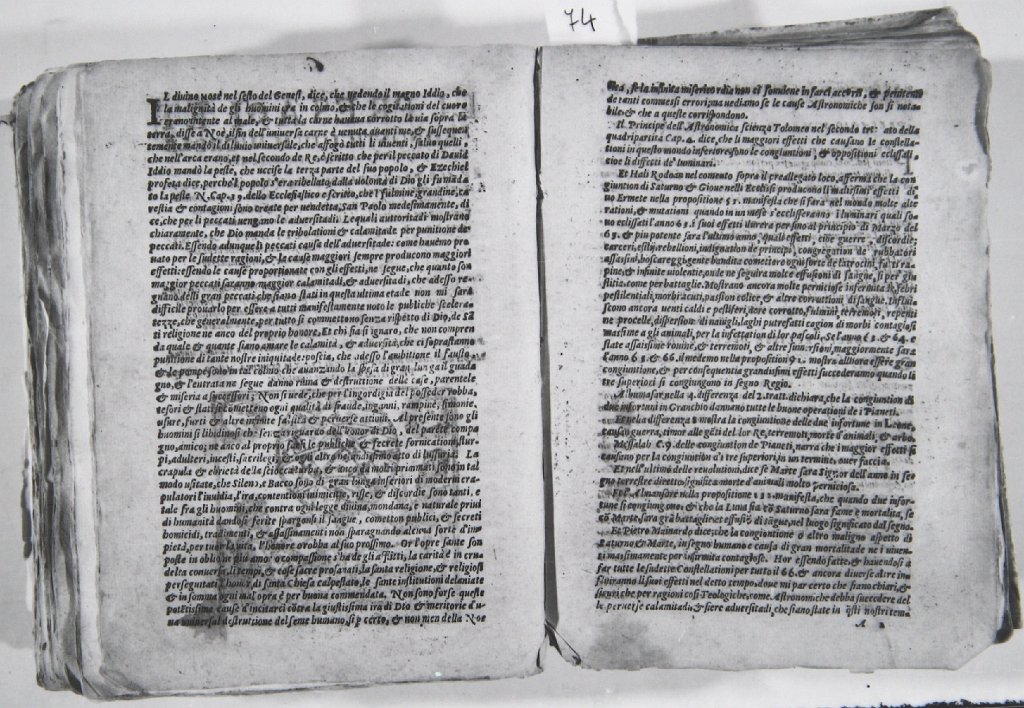 74
IL divino Mosè nel sesto del Genesi, dice, che vedendo il magno Iddio, che
la malignità de gli huomini era in colmo, & che le cogitationi del cuore
erano intente al male, & tutta la carne haueua corrotto la via sopra la
terra, disse a Noè, il fin dell'uniuersa carne è uenuta auanti me, & susseguen
temente mandò il diluuio uniuersale, che affogò tutti li uiuenti, saluo quelli,
che nell'arca erano, et nel secondo de Re, è scritto che per il peccato di Dauid
Iddio mandò la peste, che uccise la terza parte del suo popolo, & Ezechiel
profeta dice, perche'l popolo s'era ribellato dalla uolontà di Dio gli fu mãda
ta la peste. N. Cap. 39. dello Ecclesiastico è scritto, che'l fulmine, grandine, ca
restia & contagioni sono create per uendetta, San Paolo medesimamente, di
ce, che per li peccati uengono le aduersitadi. Le quali autoritadi mostrano
chiaramente, che Dio manda le tribolationi & calamitade per punitione de
peccati. Essendo adunque li peccati causa dell'aduersitade: come hauemo pro
uato per le sudette ragioni, & la cause maggiori sempre producono maggiori
effetti: essendo le cause proportionate con gli effetti, ne segue, che quanto son
maggior peccati saranno maggior calamitadi, & aduersitadi, che adesso re-
gnano delli gran peccati che siano stati in questa ultima etade non mi sarà
difficile prouarlo per essere a tutti manifestamente noto le publiche scelera-
tezze, che generalmente, per tutto si commettono senza rispetto di Dio, de Sã
ti religione ne anco del proprio honore. Et chi sia sì ignaro, che non compren
da quale & quante siano amare le calamità, & aduersità, che ci soprastanno
punitione di tante nostre iniquitade: poscia, che adesso l'ambitione il fausto
& le pompe sono in tal colmo che auanzando la spesa di gran lunga il guada
gno, & l'entrata ne segue danno ruina & destruttione delle case, parentele
& miseria a successori; Non si uede, che per l'ingordigia del posseder robba,
tesori & stati si cometteno ogni qualità di fraude, inganni, rapine, simonie,
usure, furti & altre infinite falsità & peruerse attioni. Al presente sono gli
huomini sì libidinosi che senza riguardo dell'honor di Dio, del parẽte compa
gno, amico; ne anco al proprio fan le publiche & secrete fornicationi, stu-
pi, adulteri, incesti, sacrilegi; & ogni altro nefandissimo atto di lussuria. La
crapula & ebrietà della scioccaturba, & anco da molti priuati sono in tal
modo usitate, che Sileno, e Bacco sono di gran lunga inferiori di moderni cra-
pulatori l'inuidia, l'ira, contentioni inimicitie, risse, & discordie sono tanti, e
tale fra gli huomini, che contra ogni legge diuina, mondana, e naturale priui
di humanità dandosi ferite spargonsi il sangue, cometton publici, & secreti
homicidi, tradimenti, & assassinamenti non sparagnando alcuna sorte d'im
pietà, per tuor la uita, l'honore o robba al suo prossimo. Or l'opre sante son
poste in oblio ne piu amor o compassione s'ha de gli affitti, la carità è in cru
deltà conuersa, li tempi, & cose sacre profanati, la santa religione, & religiosi
perseguitati l'honor di santa Chiesa calpestato, le sante institutioni delaniate
& in somma ogni mal opra è per buona commendata. Non sono forse queste
potẽtissime cause d'incitarci cõtra la giustissima ira di Dio & meritorie d'u-
na uniuersal destruttione del seme humano, sì p certo, & non men della Noe
tica, se la infinita misericordia non ci souuiene in farci accorti, & penitenti
de tanti commessi errori; ma uediamo se le cause Astronomiche son si nota-
bile, & che a queste corrispondono.
Il Principe dell'Astronomica scienza Tolomeo nel secondo trattato della
quadripartita Cap. 4. dice, che li maggiori effetti che causano le constella-
tioni in questo mondo inferiore, sono le congiuntioni, & oppositioni eclissati,
cioè li difetti de' luminari.
Et Hali Rodoan nel comento sopra il preallegato loco, afferma che la con
giuntion di Saturno & Gioue nelli Ecclissi producono li medesimi effetti di
no Ermete nella propositione 51. manifesta che si farà nel mondo molte alte
rationi, & mutationi quando in un mese s'eclisseranno i luminari quali so-
no eclissati l'anno 63. i suoi effetti durerà per sino al principio di Marzo del
65. & piu potente sarà l'ultimo anno, quali effetti, cioè guerre, discordie;
carceri, esilij, rebellioni, indignation de principi, congregation de rubbatori
assassini, boscareggi, gente bandita comettere ogni sorte de latrocini, furti, rapi-
pine, & infinite uiolentie, onde ne seguirà molte effusioni di sangue, sì per giu
stitia come per battaglie. Mostrano ancora molte perniciose infermità de febri
pestilentiali, morbi acuti, passion colice, & altre corruttioni di sangue. Influi
scono ancora uenti caldi e pestiferi, aere corrotto, fulmini, terremoti, repenti
ne procelle, dispersion di nauigli, laghi putrefatti cagion di morbi contagiosi
massime a gli animali, per la infettation di lor pascoli. Se l'anno 63. & 64. è
state assaissime rouine, & terremoti, & altre simersioni, maggiormente sarà
l'anno 65. & 66. il medemo nella propositione 92. mostra allhora essere gran
congiuntione, & per consequentia grandissimi effetti succederanno quando li
tre superiori si congiungono in segno Regio.
Albumasar, nella 4. differenza del 2. tratt. dichiara, che la congiuntion di
due infortuni in Granchio dannano tutte le buone operationi de i Pianeti.
Et nella differenza 8 mostra la congiuntione delle due infortune in Leone,
causan guerra, timor alle gẽti del lor Re, terremoti, morte d'animali, & arbo.
Messalah C. 9. delle congiuntion de Pianeti, narra che i maggior effetti si
causano per la congiuntion di tre superiori, in un termine, ouer faccia.
Et nell'ultimo delle reuolutioni, dice se Marte sarà Signor dell'anno in se-
gno terrestre diretto significa morte d'animali molto perniciosa.
Et Almansore nella propositione 112. manifesta, che quando due infor-
tune si congiungono, & che la Luna sia cõ Saturno sarà fame e mortalità, se
cõ Marte, sarà grã battaglie et effusiõ di sãgue, nel luogo significato dal segno.
Et Pietro Mainardo dice, che la congiuntione o altro maligno aspetto di
Saturno & Marte, in segno humano è causa di gran mortalità ne i uiuen-
ti massimamente per infirmità contagiose. Hor essendo fatte, & hauendosi a
far tutte le sudette Constellationi per tutto il 66. & ancora diuerse altre in-
fluiranno li suoi effetti nel detto tempo, doue mi par certo che siano chiari, &
sicuri che per ragioni cosi Teologiche, come Astronomiche debba succedere del
le peruerse calamitadi, & fiere aduersitadi, che siano state in q̃sti nostri tem-
A 2